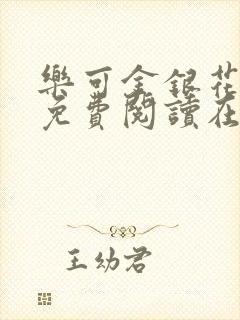 樂可金銀花
免費閱讀在
王幼君